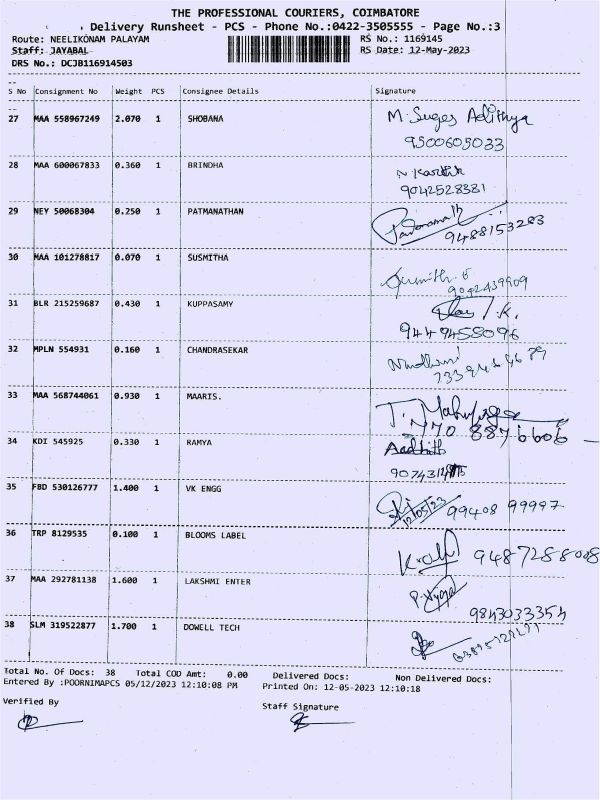 THE PROFESSIONAL COURIERS, COIMBATORE
Delivery Runsheet - PCS - Phone No.:0422-3505555 - Page No.:3
Route: NEELIKONAM PALAYAM RS No.: 1169145
Staff: JAYABAL RS Date: 12-May-2023
DRS No.: DCJB116914503
S No Consignment No Weight PCS Consignee Details Signature
27 MAA 558967249 2.070 1 SHOBANA M. Suges Adithya
9500605033
28 MAA 600067833 0.360 1 BRINDHA N Karthik
9042528381
29 NEY 50068304 0.250 1 PATMANATHAN
9488153283
30 MAA 101278817 0.070 1 SUSMITHA
9042439909
31 BLR 215259687 0.430 1 KUPPASAMY T.K.
9449458096
32 MPLN 554931 0.160 1 CHANDRASEKAR
33 MAA 568744061 0.930 1 MAARIS.
8876606
34 KDI 545925 0.330 1 RAMYA Aadhith
35 FBD 530126777 1.400 1 VK ENGG
12/05/23 99408 99997
36 TRP 8129535 0.100 1 BLOOMS LABEL
9487288008
37 MAA 292781138 1.600 1 LAKSHMI ENTER
9843033354
38 SLM 319522877 1.700 1 DOWELL TECH
Total No. Of Docs: 38 Total COD Amt: 0.00 Delivered Docs: Non Delivered Docs:
Entered By :POORNIMAPCS 05/12/2023 12:10:08 PM Printed On: 12-05-2023 12:10:18
Verified By Staff Signature